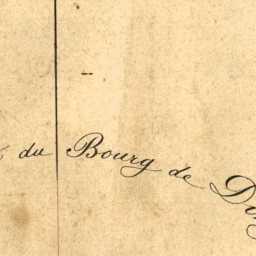 du Bourg de